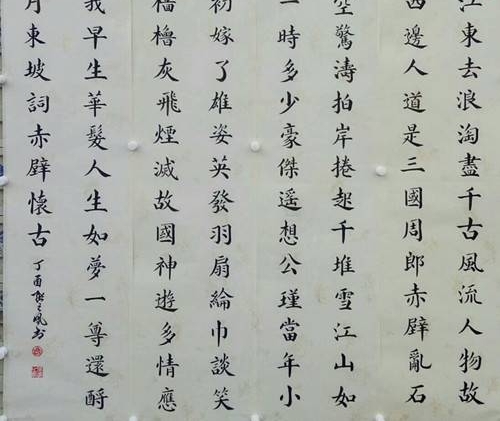 江東去浪淘盡千古風流人物故
西邊人道是三國周郎赤壁亂石
空驚濤拍岸捲起千堆雪江山如
一時多少豪傑遙想公瑾當年小
初嫁了雄姿英發羽扇綸巾談笑
檣櫓灰飛煙滅故國神遊多情應
我早生華髮人生如夢一尊還酹
月東坡詞赤壁懷古
丁酉